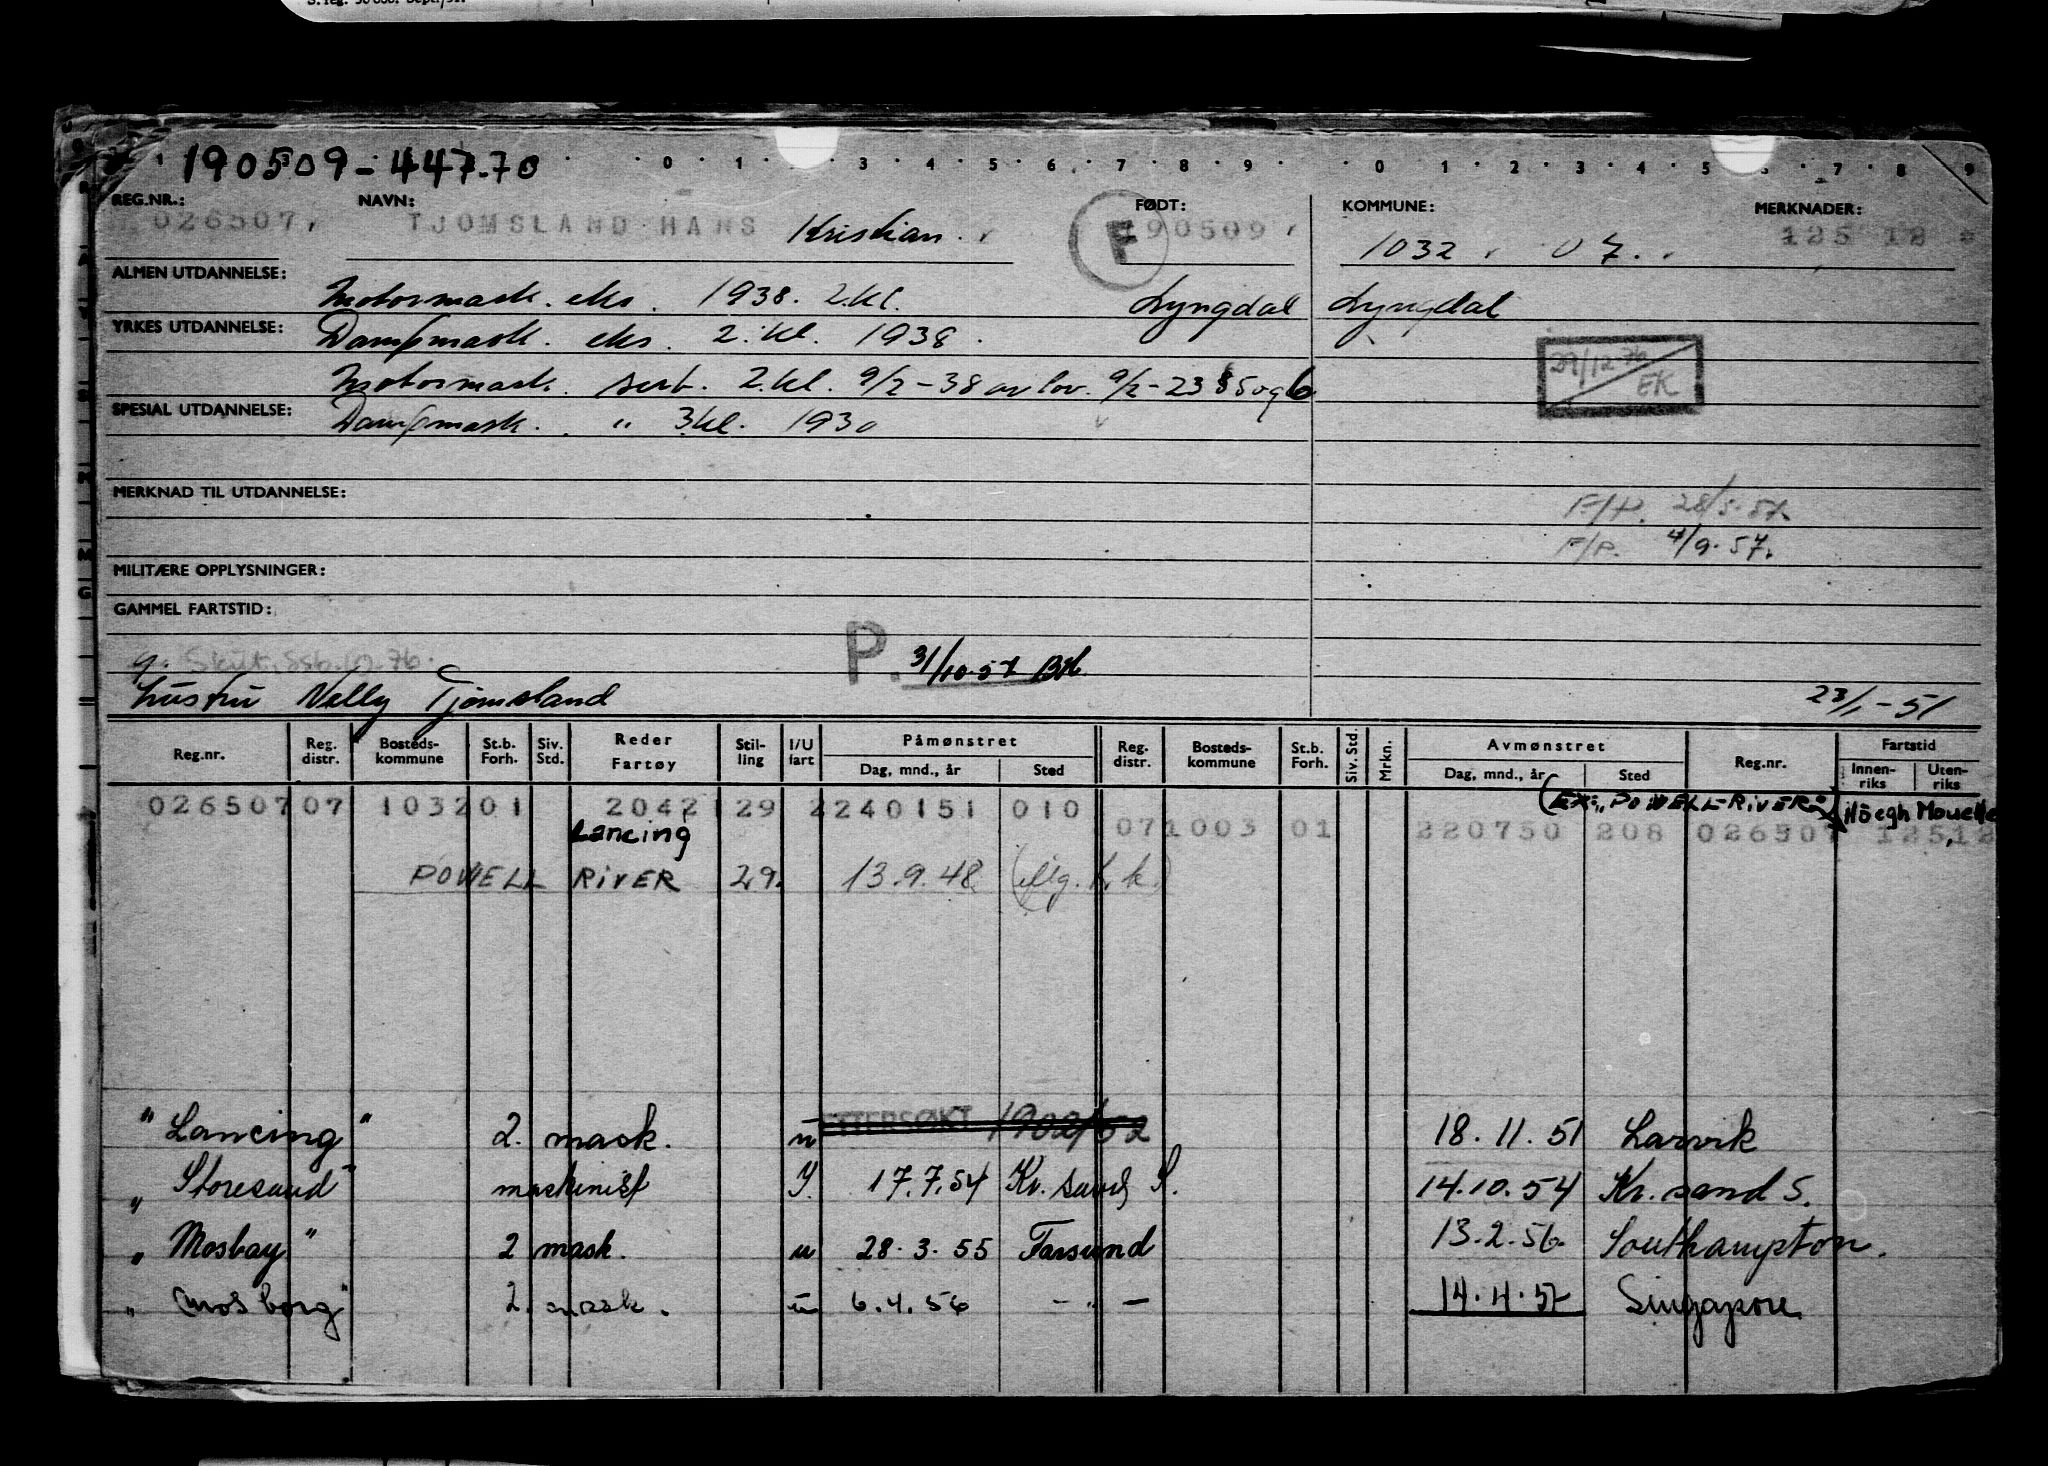 190509-447.70
0 1 3 4 5 6 7 8 9 0 1 2 3 4 7 8 9
REG.NR.: NAVN: FØDT: KOMMUNE: MERKNADER:
026507. TJOMSLAND HANS Kristian. F 190509 1032 07. 125 12
ALMEN UTDANNELSE:
Motormask. eks. 1938. 2.kl. Lyngdal Lyngdal
YRKES UTDANNELSE: Dampmask. eks. 2.kl. 1938.
29/12-76 EK
Motormask. sert. 2.kl. 9/2-38 av lov. 9/2-23 §5 og 6
SPESIAL UTDANNELSE: Dampmask. " 3kl. 1930
MERKNAD TIL UTDANNELSE:
F/P. 28/5-57.
F/P. 4/9.57.
MILITÆRE OPPLYSNINGER:
GAMMEL FARTSTID:
P. 31/10-57
g. Skut. ssb. 10.76.
hustru Nelly Tjømsland 23/1-51
Reg.nr. Reg. distr. Bosteds-kommune St.b. Forh. Siv. Std. Reder Fartøy Stil-ling I/U fart Påmønstret Dag, mnd., år Sted Reg. distr. Bosteds-kommune St.b. Forh. Siv. Std. Mrkn. Avmønstret Dag, mnd., år Sted Reg.nr. Fartstid Innen-riks Uten-riks
(Ex: "POWELL RIVER" Höegh Mouette
026507 07 1032 01 2042 129 2 240151 010
Lancing
071003 01 220750 208 026507 125,12
POWELL RIVER 29. 13.9.48.
"Lancing" 2. mask. u ETTERSØKT 18.11.51 Larvik
"Storesund" maskinist I. 17.7.54 Kr.sand S. 14.10.54 Kr.sand S.
"Mosbay" 2 mask. u 28.3.55 Farsund 13.2.56. Southampton.
"Mosborg" 2. mask. u 6.4.56 - " - 14.4.57 Singapore